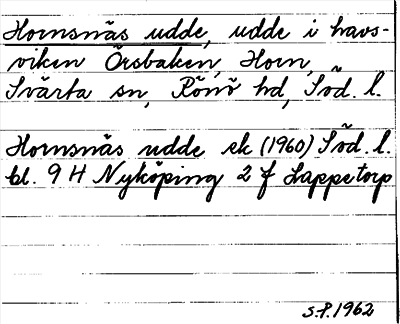 Hornsnäs udde, udde i havs-
viken Örsbaken, Horn,
Svärta sn, Rönö hd, Söd. l.
Hornsnäs udde ek (1960) Söd. l.
bl. 9 H Nyköping 2 f Lappetorp
S.P. 1962